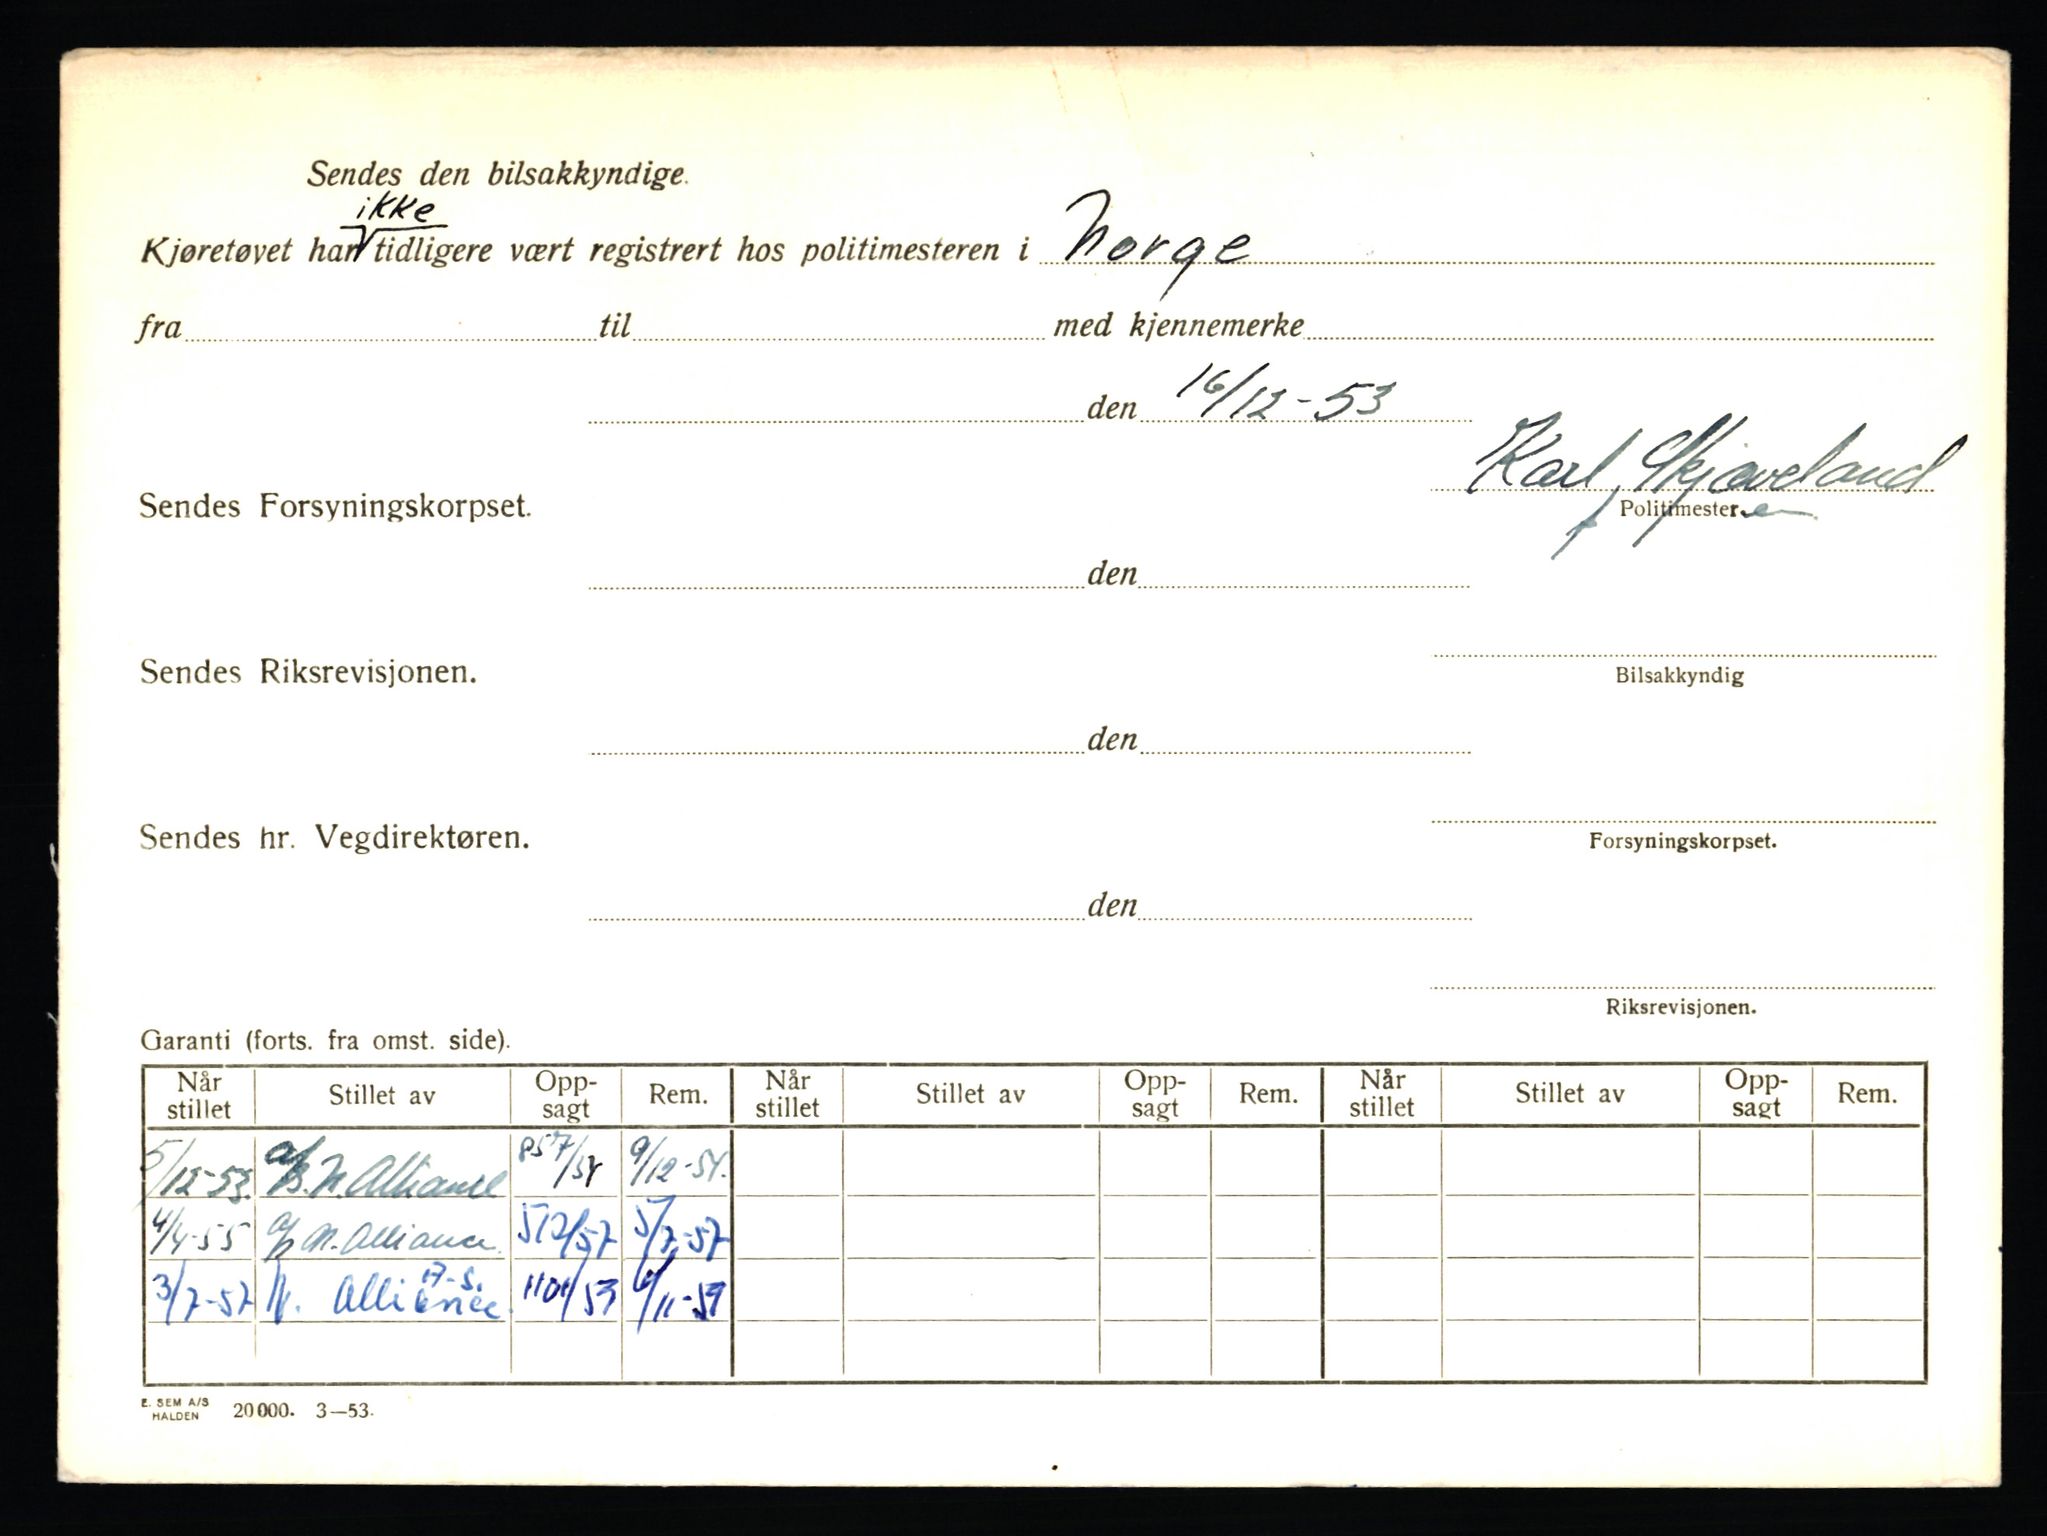 Sendes den bilsakkyndige.
ikke
Kjøretøyet har tidligere vært registrert hos politimesteren i Norge
fra til med kjennemerke
den 16/12-53
Karl Skjæveland
Sendes Forsyningskorpset.
Politimester.en
den
Sendes Riksrevisjonen.
Bilsakkyndig
den
Sendes hr. Vegdirektøren.
Forsyningskorpset.
den
Riksrevisjonen.
Garanti (forts. fra omst. side).
Når stillet Stillet av Opp-sagt Rem. Når stillet Stillet av Opp-sagt Rem. Når stillet Stillet av Opp-sagt Rem.
5/12-53. N. Alliance 857/54 9/12-54.
4/4-55 N. Alliance 512/57 5/7-57
3/7-57 N. Alliance A-S. 1101/59 /11-59
E. SEM A/S
HALDEN 20000. 3—53.